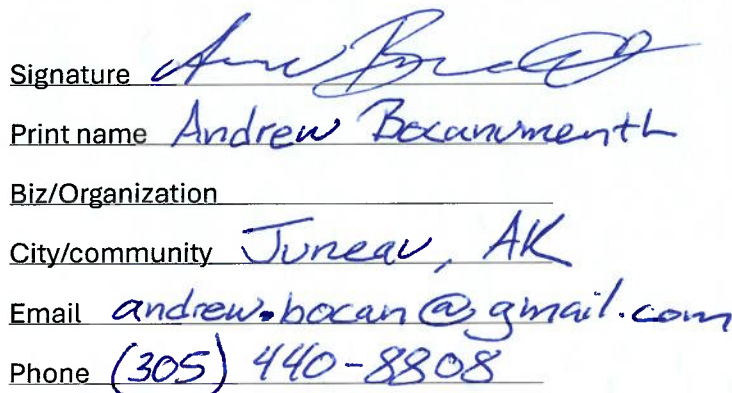 Signature
Print name Andrew Bocanumenth
Biz/Organization
City/community Juneau, AK
Email andrew.bocan@gmail.com
Phone (305) 440-8808